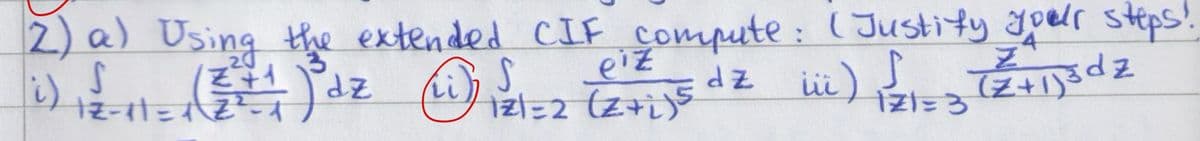 2) a) Using the extended CIF compute: (Justify your steps!
i) ∫_{|z-1|=1} ((z^{20}+1)/(z^2-1))^3 dz (ii) ∫_{|z|=2} e^{iz}/(z+i)^5 dz iii) ∫_{|z|=3} z^4/(z+1)^3 dz